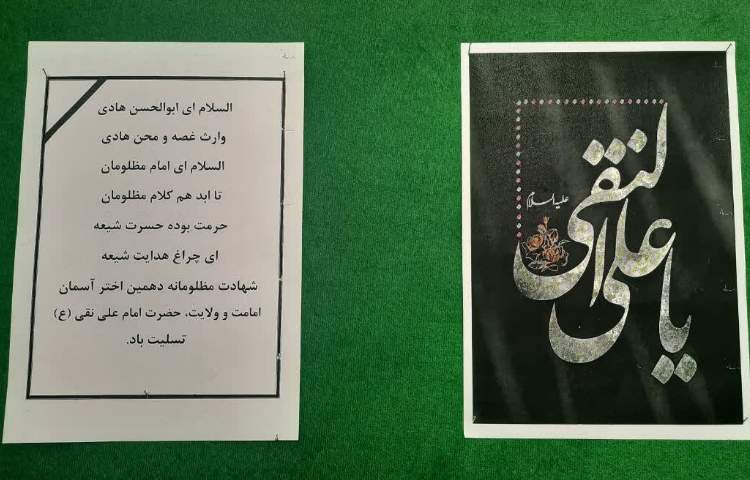 السلام ای ابوالحسن هادی
وارث غصه و محن هادی
السلام ای امام مظلومان
تا ابد هم کلام مظلومان
حرمت بوده حسرت شیعه
ای چراغ هدایت شیعه
شهادت مظلومانه دهمین اختر آسمان
امامت و ولایت، حضرت امام علی نقی (ع)
تسلیت باد.
یا علی النقی
علیه السلام